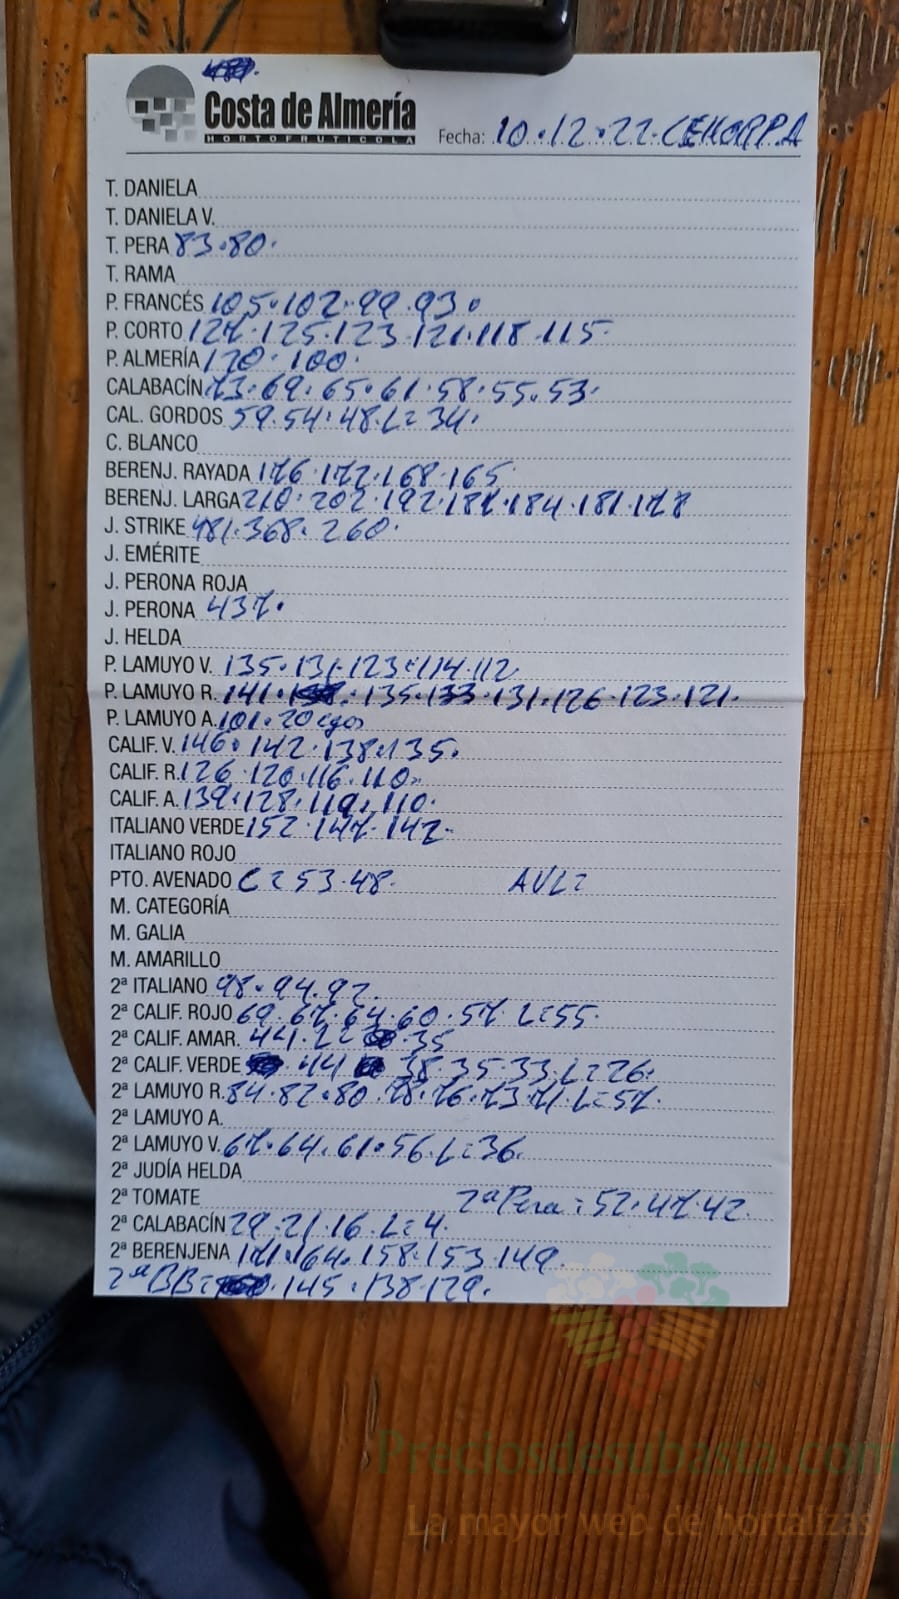 Costa de Almería
HORTOFRUTICOLA
Fecha: 10.12.22. CEHORPA
T. DANIELA
T. DANIELA V.
T. PERA 83.80.
T. RAMA
P. FRANCÉS 105.102.99.93.
P. CORTO 127.125.123.121.118.115.
P. ALMERÍA 120.100.
CALABACÍN 73.69.65.61.58.55.53.
CAL. GORDOS 59.54.48.L=34.
C. BLANCO
BERENJ. RAYADA 176.172.168.165.
BERENJ. LARGA 210.202.192.187.184.181.178
J. STRIKE 481.368.260.
J. EMÉRITE
J. PERONA ROJA
J. PERONA 437.
J. HELDA
P. LAMUYO V. 135.131.123.114.112
P. LAMUYO R. 141. .135.133.131.126.123.121.
P. LAMUYO A. 101.20
CALIF. V. 146.142.138.135.
CALIF. R. 126.120.116.110.
CALIF. A. 139.128.119.110.
ITALIANO VERDE 152.147.142.
ITALIANO ROJO
PTO. AVENADO C=53.48. AVL=
M. CATEGORÍA
M. GALIA
M. AMARILLO
2ª ITALIANO 98.94.92.
2ª CALIF. ROJO 69.67.64.60.57.L=55.
2ª CALIF. AMAR. 44.L= .35
2ª CALIF. VERDE .44 38.35.33.L=26.
2ª LAMUYO R. 84.82.80.78.76.73.71.L=57.
2ª LAMUYO A.
2ª LAMUYO V. 67.64.61.56.L=36.
2ª JUDÍA HELDA
2ª TOMATE 2ª Pera = 52.47.42.
2ª CALABACÍN 29.21.16.L=4.
2ª BERENJENA 171.164.158.153.149.
2ª BB= .145.138.129.
Preciosdesubasta.com
La mayor web de hortalizas